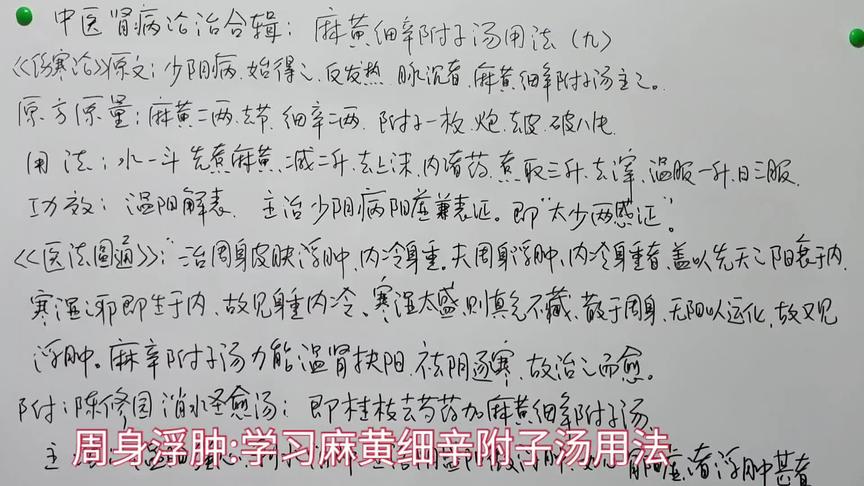 中医肾病论治合辑：麻黄细辛附子汤用法（九）
《伤寒论》原文：少阴病、始得之、反发热、脉沉者、麻黄细辛附子汤主之。
原方原量：麻黄二两、去节、细辛二两、附子一枚、炮、去皮、破八片
用法：水一斗、先煮麻黄、减二升、去上沫、内诸药、煮取三升、去滓、温服一升、日三服、
功效：温阳解表、主治少阴病阳虚兼表证。即“太少两感证”。
《医法圆通》：“治周身皮肤浮肿、内冷身重。夫周身浮肿、内冷身重者、盖以先天之阳衰于内、
寒湿之邪即生于内、故见身重内冷、寒湿太盛、则真元不藏、散于周身、无阳以运化、故又见
浮肿。麻辛附子汤力能温肾扶阳、祛阴逐寒、故治之而愈。
附：陈修园消水圣愈汤：即桂枝去芍药加麻黄细辛附子汤、
周身浮肿:学习麻黄细辛附子汤用法
阳虚者浮肿甚者